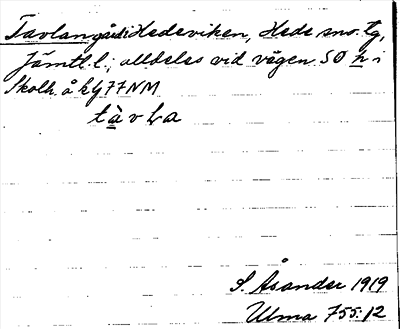 Tavlan gård i Hedeviken, Hede sn o. tg,
Jämtl. l.; alldeles vid vägen SO n i
Skolh. å kbl 77 NM
tàvLa
S. Åsander 1919
Ulma 755:12